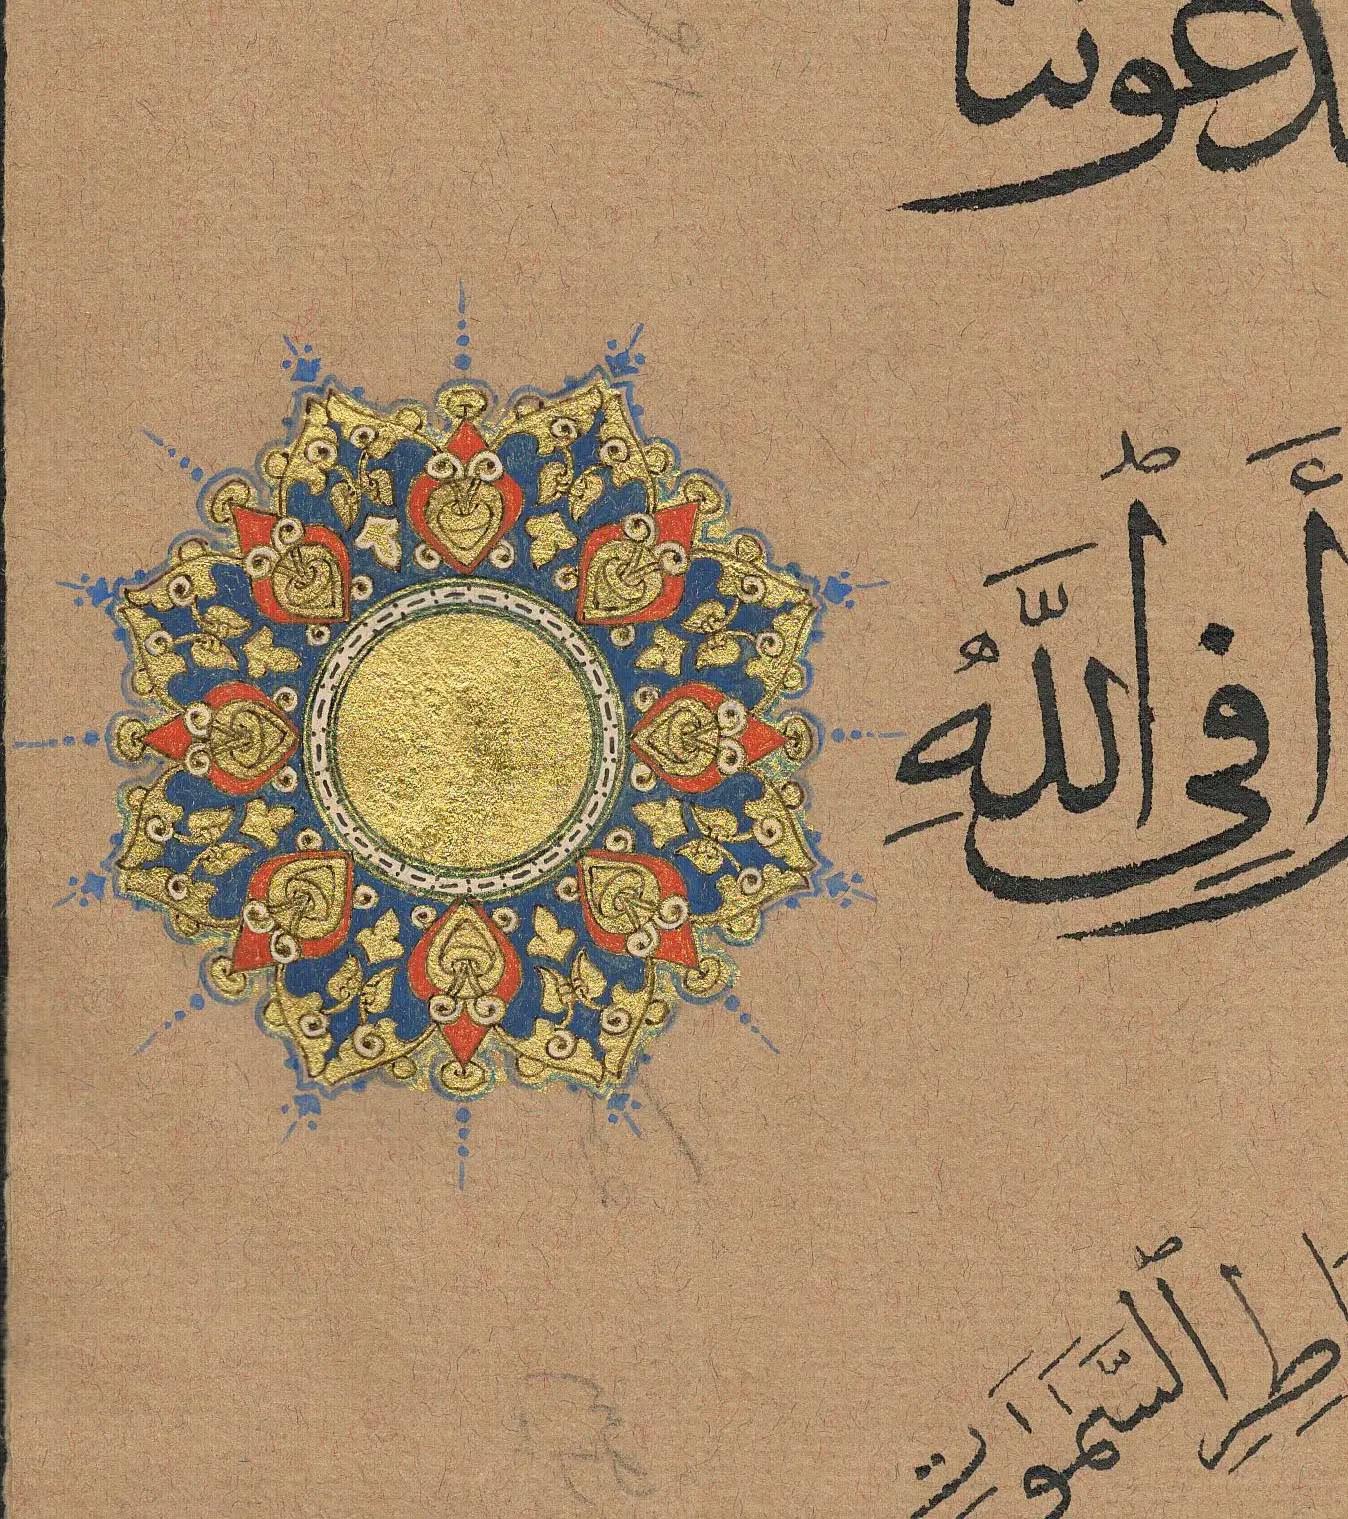 دعوننا
أَفِي ٱللَّهِ
طِرِ ٱلسَّمَٰوَٰتِ